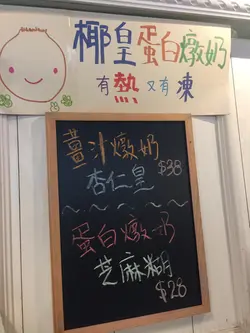 椰皇蛋白燉奶
有熱又有凍
薑汁燉奶
杏仁皇 $38
蛋白燉奶
芝麻糊 $28